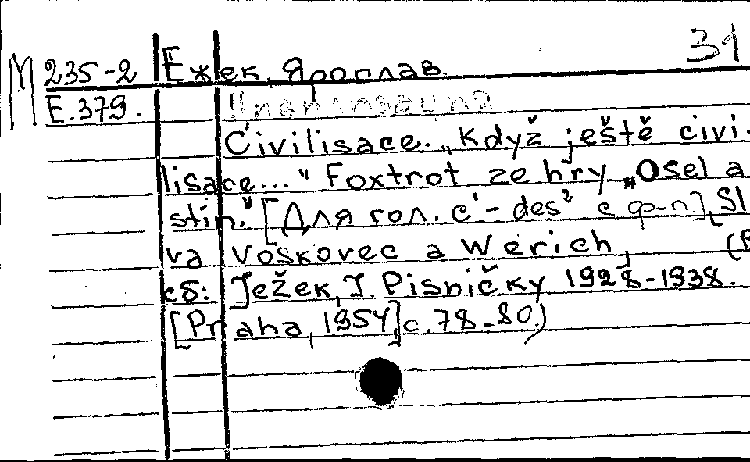 31
М 235-2 Ежек, Ярослав.
Е.379. Цивилизация
Civilisace. „Když ještě civi-
lisace..." Foxtrot ze hry „Osel a
stín." [Для гол. c'-des² с ф-п], Sl
va Voskovec a Werich, (В
сб: Ježek, J. Pisničky 1928-1938.
[Praha, 1954] с. 78-80.)